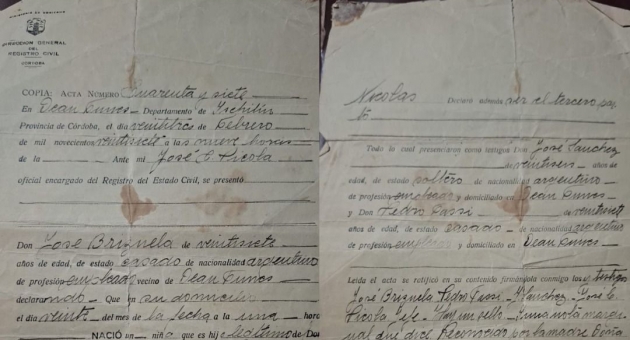 MINISTERIO DE GOBIERNO
DIRECCION GENERAL
DEL
REGISTRO CIVIL
CORDOBA
COPIA: ACTA NÚMERO Cuarenta y siete
En Dean Funes Departamento de Ischilin
Provincia de Córdoba, el día veintitres de Febrero
de mil novecientos veintisiete a las nueve horas
de la Ante mí José C. Picola
oficial encargado del Registro del Estado Civil, se presentó
Don José Brizuela de veintisiete
años de edad, de estado casado de nacionalidad argentino
de profesión empleado vecino de Dean Funes
declarando Que en su domicilio
el día veinte del mes de la fecha a la una hora
NACIÓ un niño que es hijo legitimo de Don
Nicolas Declaró además ser el tercero par
to
Todo lo cual presenciaron como testigos Don José Sanchez
de veintiseis años de
edad, de estado soltero de nacionalidad argentino
de profesión empleado y domiciliado en Dean Funes
y Don Pedro Passi de veintisiete
años de edad, de estado casado de nacionalidad argentino
de profesión empleado y domiciliado en Dean Funes
Leída el acta se ratificó en su contenido firmándola conmigo los testigos
José Brizuela Pedro Passi JSanchez José C.
Picola Jefe Hay un sello Una nota margi
nal que dice Reconocido por la madre Doña